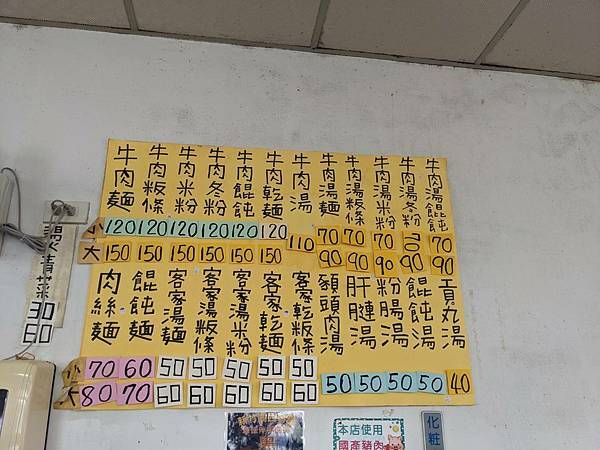 牛肉麵
牛肉粄條
牛肉米粉
牛肉冬粉
牛肉餛飩
牛肉乾麵
牛肉湯
牛肉湯麵
牛肉湯粄條
牛肉湯米粉
牛肉湯冬粉
牛肉湯餛飩
小 120 120 120 120 120 120 110 70 70 70 70 70
大 150 150 150 150 150 150 90 90 90 90 90
肉絲麵
餛飩麵
客家湯麵
客家湯粄條
客家湯米粉
客家乾麵
客家乾粄條
頭肉湯
肝腱湯
粉腸湯
餛飩湯
貢丸湯
小 70 60 50 50 50 50 50
大 80 70 60 60 60 60 60 50 50 50 50 40
燙青菜
30
60
本店使用
國產豬肉
化粧